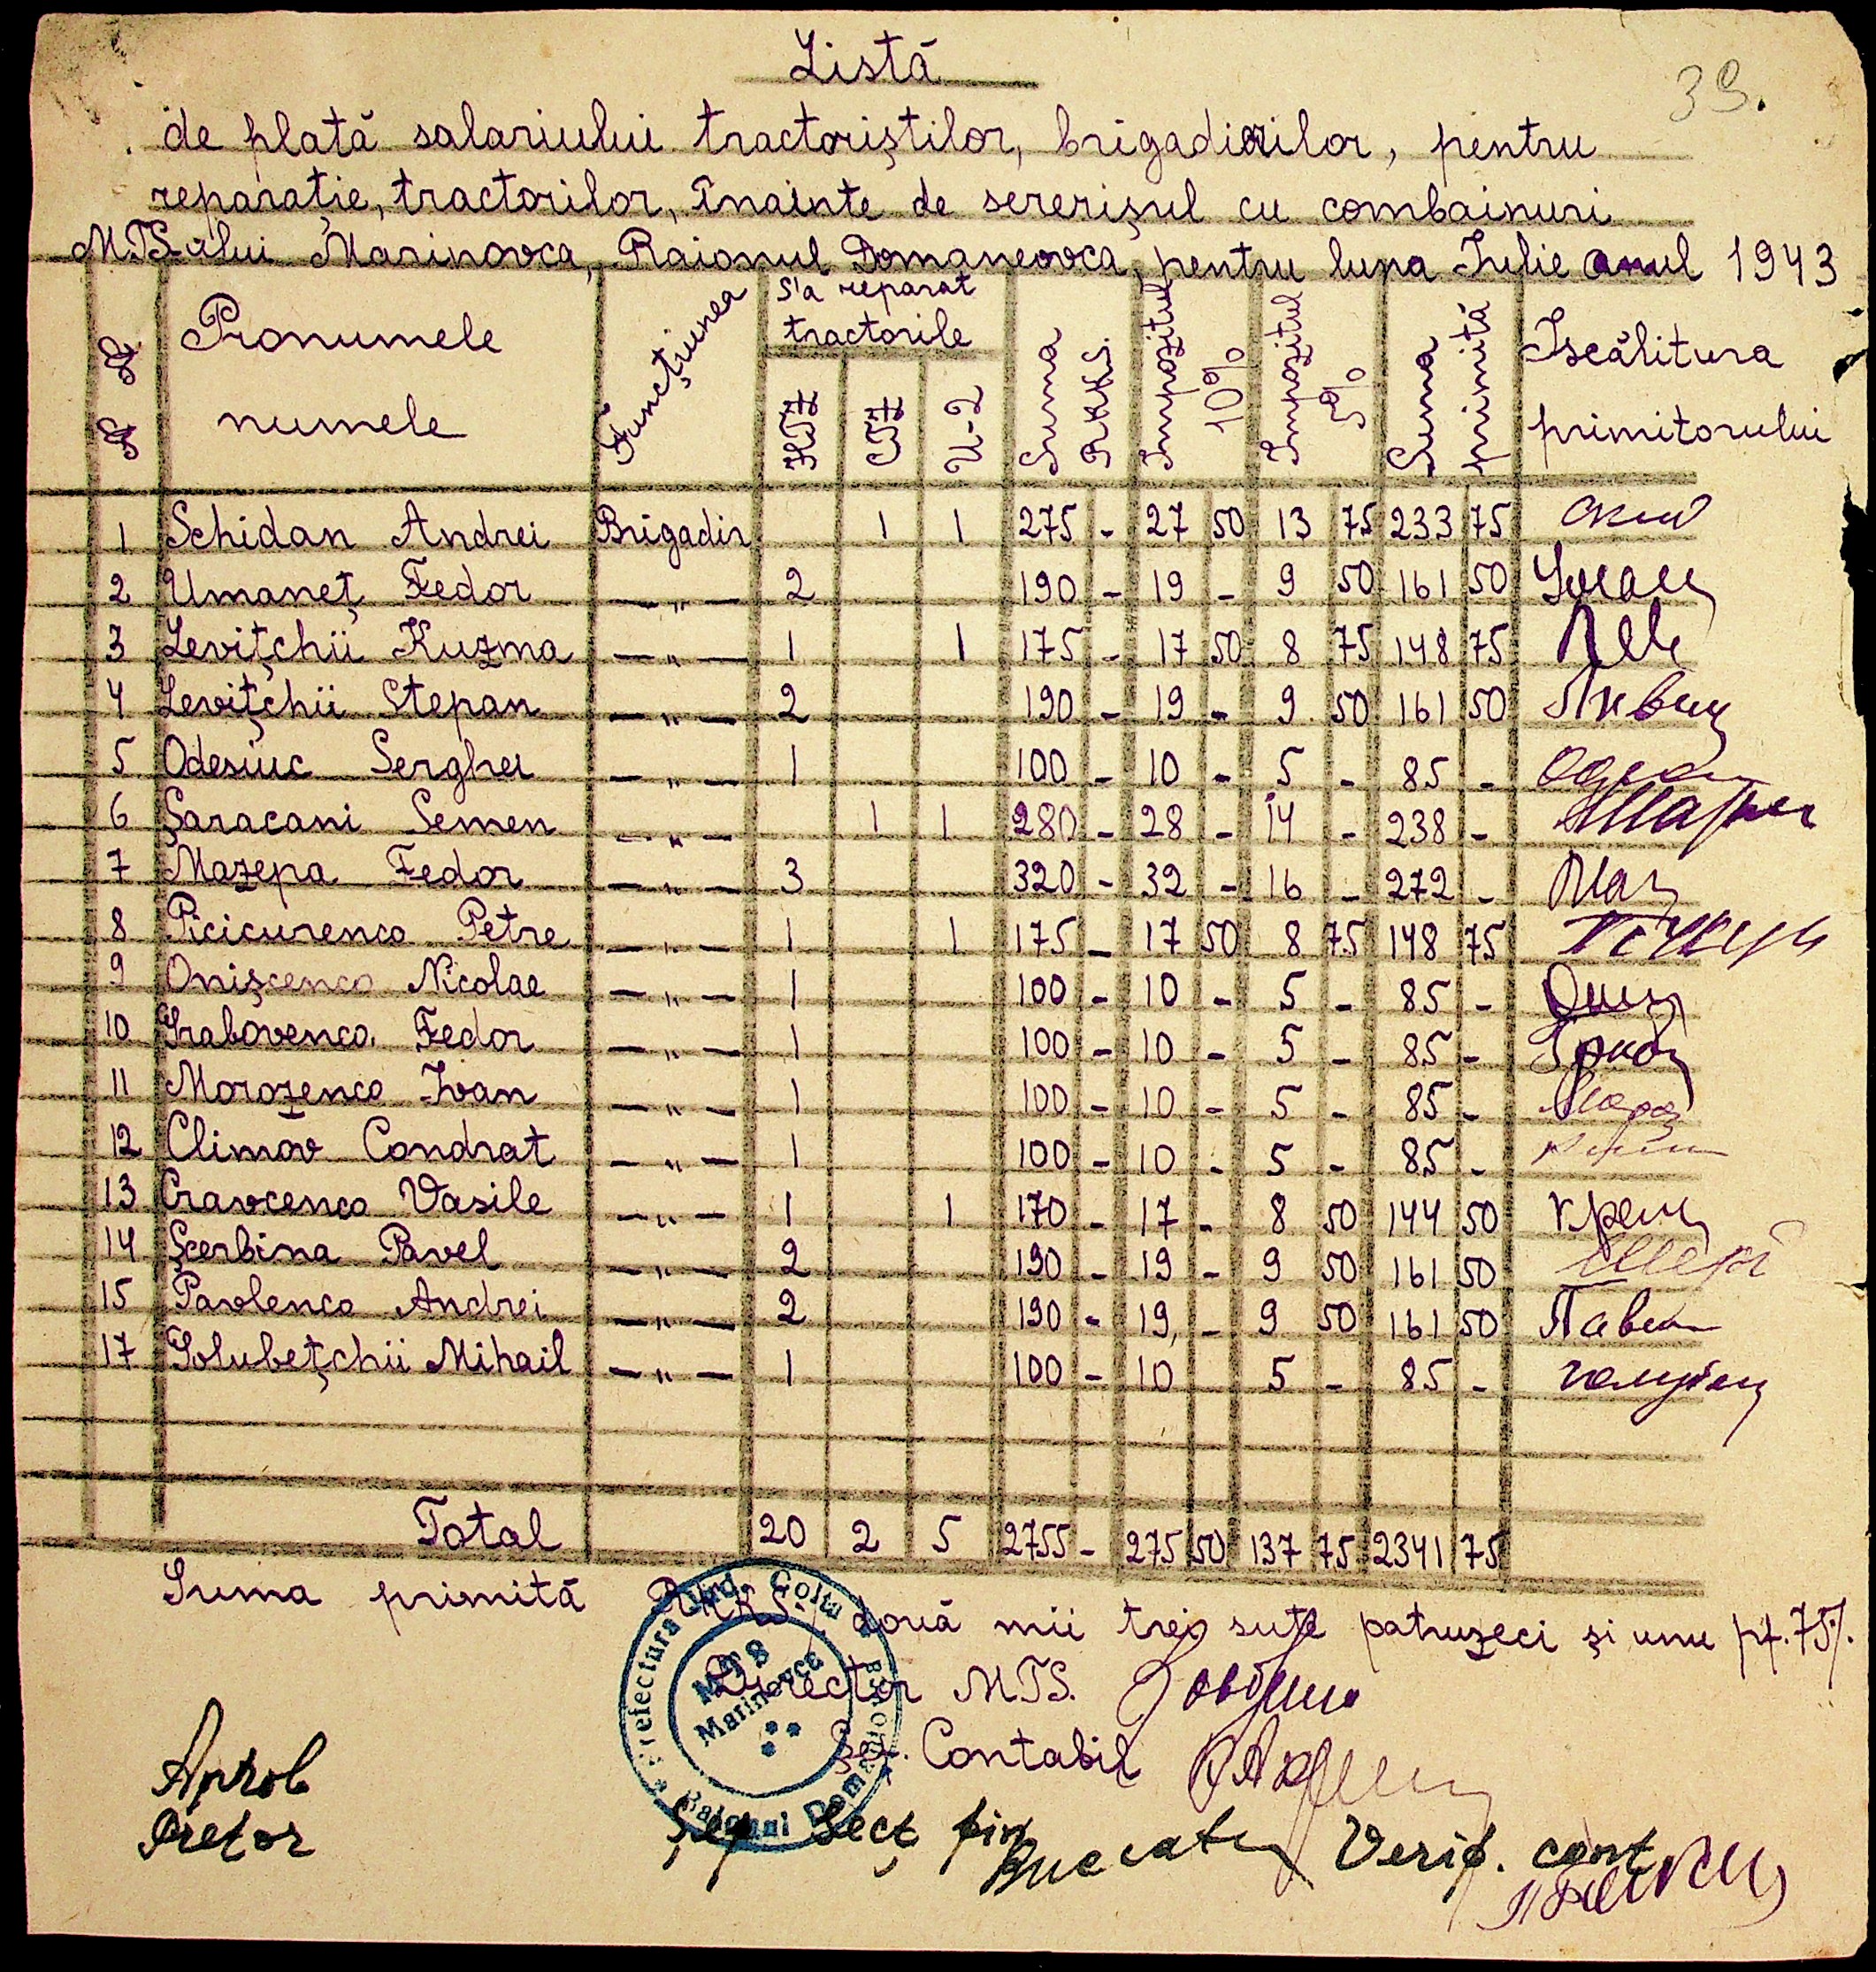 39.
Listă
de plată salariului tractoriștilor, brigadirilor, pentru
reparație, tractorilor, înainte de sererișul cu combainuri
M.T.S-ului Marinovca, Raionul Domaneovca, pentru luna Iulie anul 1943
Pronumele numele Funcțiunea S'a reparat tractorile ХТЗ СТЗ У-2 Suma RKKS. Impozitul 10% Impozitul 5% Suma primită Iscălitura primitorului
1 Schidan Andrei Brigadir 1 1 275 - 27 50 13 75 233 75
2 Umaneț Fedor —"— 2 190 - 19 - 9 50 161 50
3 Levițchii Kuzma —"— 1 1 175 - 17 50 8 75 148 75
4 Levițchii Stepan —"— 2 190 - 19 - 9 50 161 50
5 Odesiuc Serghei —"— 1 100 - 10 - 5 - 85 -
6 Șaracani Semen —"— 1 1 280 - 28 - 14 - 238 -
7 Mazepa Fedor —"— 3 320 - 32 - 16 - 272 -
8 Picicurenco Petre —"— 1 1 175 - 17 50 8 75 148 75
9 Onișcenco Nicolae —"— 1 100 - 10 - 5 - 85 -
10 Grabovenco Fedor —"— 1 100 - 10 - 5 - 85 -
11 Morozenco Ivan —"— 1 100 - 10 - 5 - 85 -
12 Climov Condrat —"— 1 100 - 10 - 5 - 85 -
13 Cravcenco Vasile —"— 1 1 170 - 17 - 8 50 144 50
14 Șcerbina Pavel —"— 2 190 - 19 - 9 50 161 50
15 Pavlenco Andrei —"— 2 190 - 19 - 9 50 161 50
17 Golubețchii Mihail —"— 1 100 - 10 5 - 85 -
Total 20 2 5 2755 - 275 50 137 75 2341 75
Suma primită RKKS. două mii trei sute patruzeci și unu pf. 75%.
Prefectura Jud. Golta
Raionul Domaneovca
MTS
Marinovca
Director M.T.S.
Șef. Contabil
Aprob
Pretor
Șef Secț fin
Verif. cont